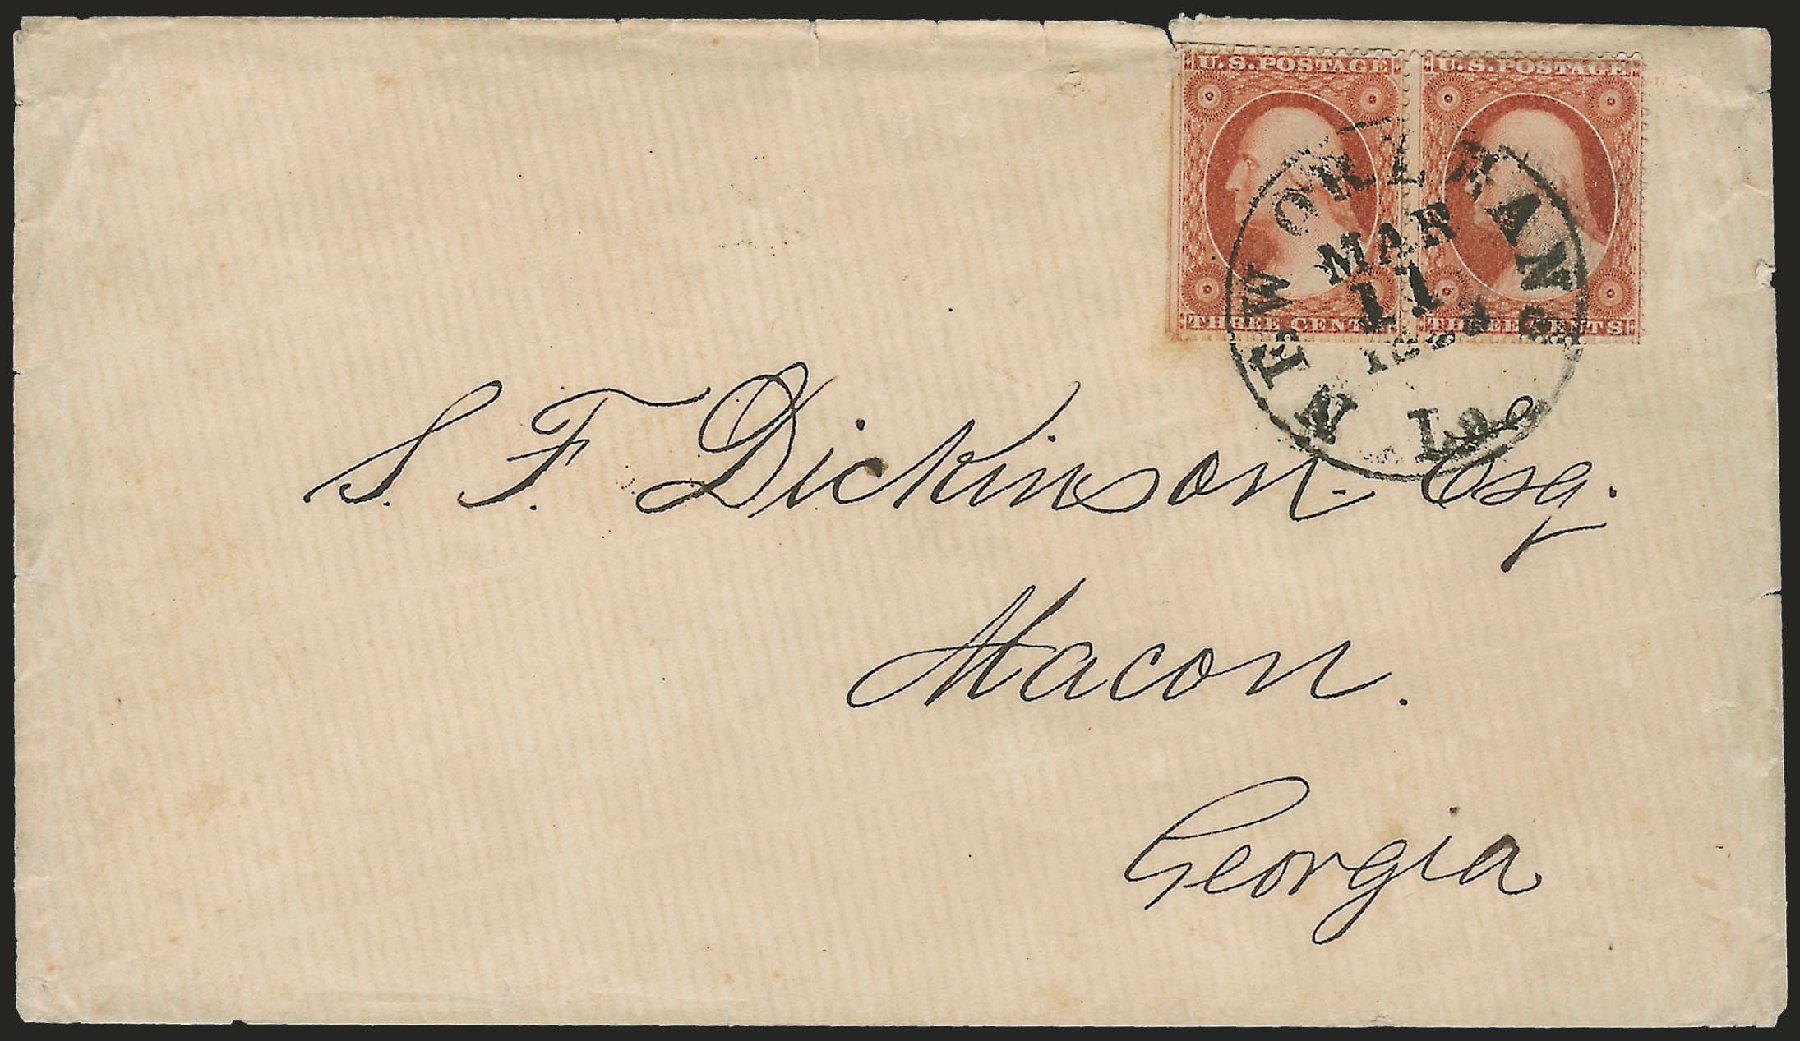 U.S. POSTAGE U.S. POSTAGE
NEW ORLEANS
MAR
11
La.
THREE CENTS THREE CENTS
S. F. Dickinson. Esq.
Macon.
Georgia